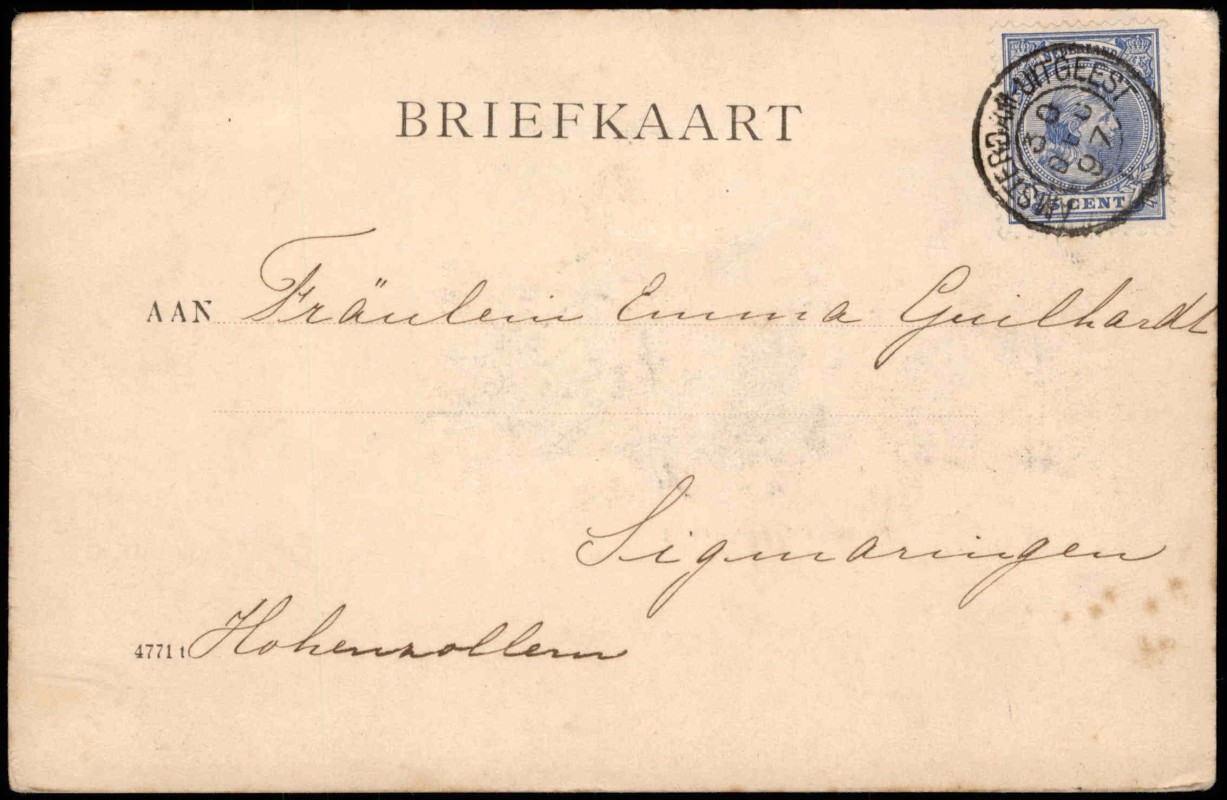 BRIEFKAART
NEDERLAND
AMSTERDAM-UITGEEST
30
DEC
97
CENT
AAN Fräulein Emma Guilhardt
Sigmaringen
4771 t Hohenzollern